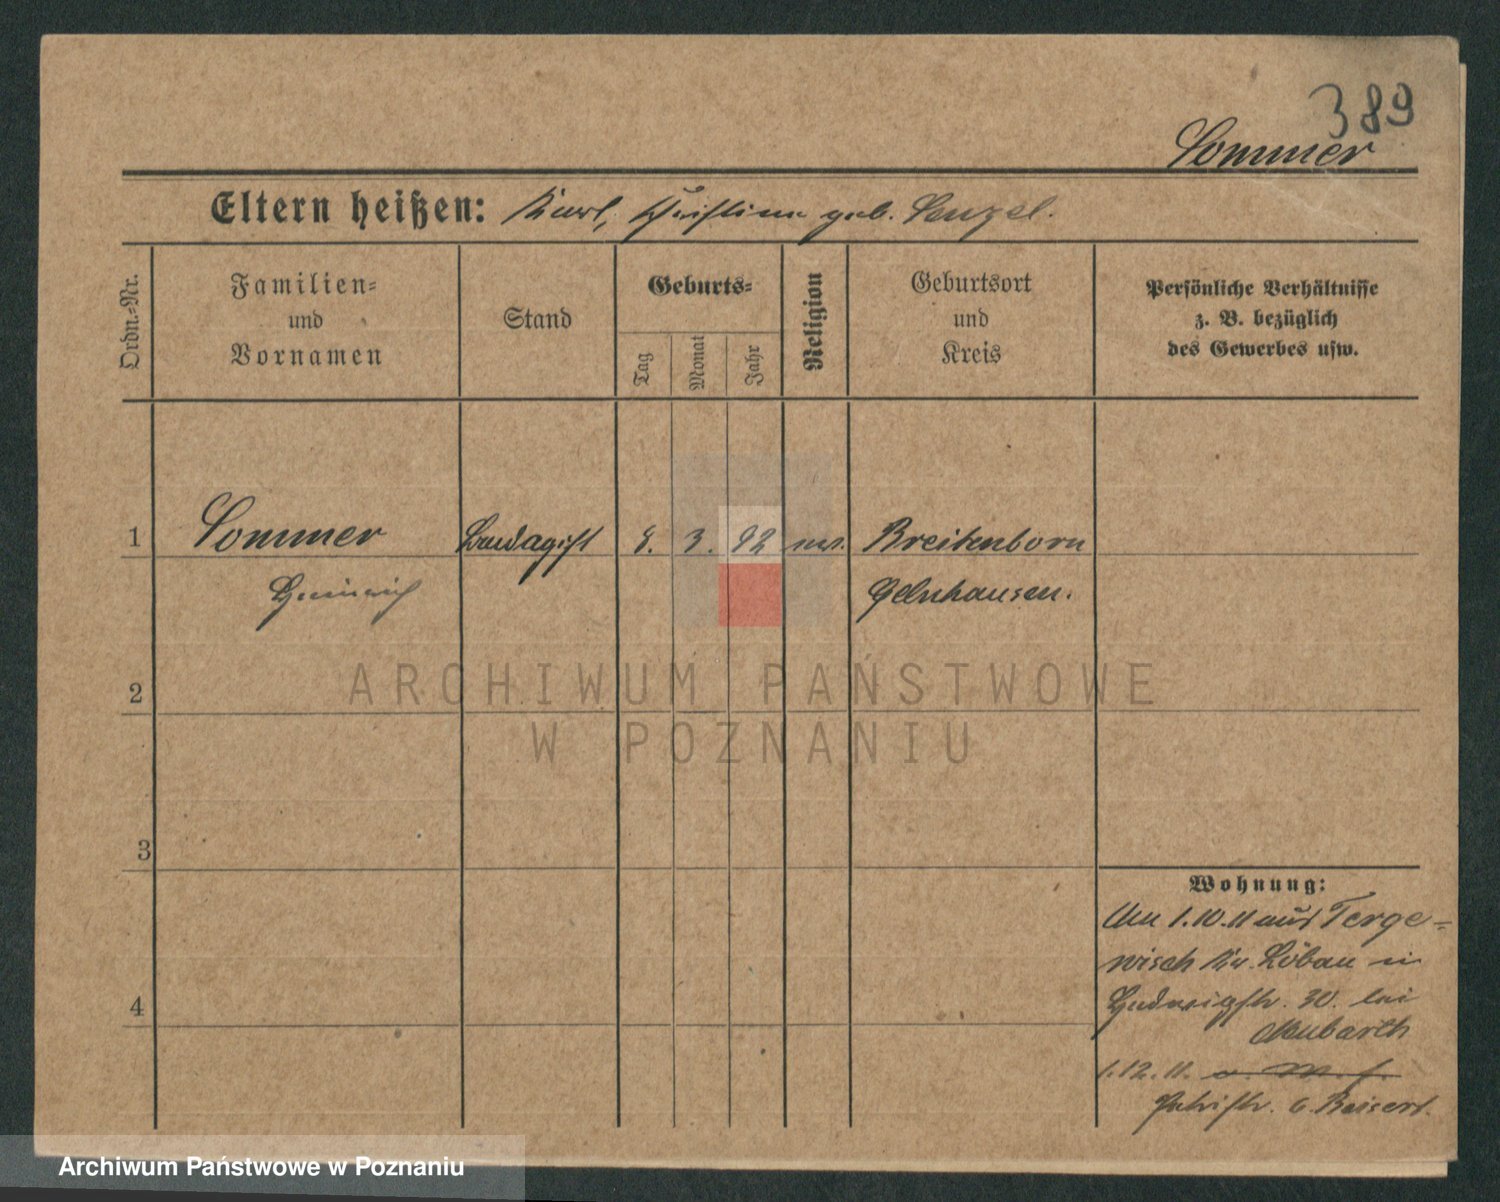 389
Sommer
Eltern heißen: Karl, Christine geb. Lenzel.
Ordn.-Nr.
Familien=
und
Vornamen
Stand
Geburts=
Tag
Monat
Jahr
Religion
Geburtsort
und
Kreis
Persönliche Verhältnisse
z. B. bezüglich
des Gewerbes usw.
1 Sommer 3. 92 Breitenborn
Heinrich Gelnhausen.
2
ARCHIWUM PAŃSTWOWE
W POZNANIU
3
4
Wohnung:
Am 1.10.11 aus Terge=
wisch Kr. Löbau in
Hedwigstr. 30. bei
Meubarth
1.12.11.
Archiwum Państwowe w Poznaniu